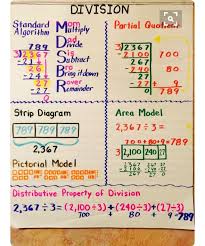 DIVISION
Standard Algorithm
Mom
Dad
Sis
Bro
Rover
Multiply
Divide
Subtract
Bring it down
Remainder
789
3)2,367
-21
26
-24
27
-27
0
Partial Quotient
3)2,367
-2100
700
267
-240
80
27
-27
+ 9
0
789
Strip Diagram
789 789 789
2,367
Pictorial Model
Area Model
2,367 ÷ 3 =
700 + 80 + 9 = 789
3 2,100 240 27
Distributive Property of Division
2,367 ÷ 3 = (2,100÷3) + (240÷3) + (27÷3)
700 + 80 + 9 = 789